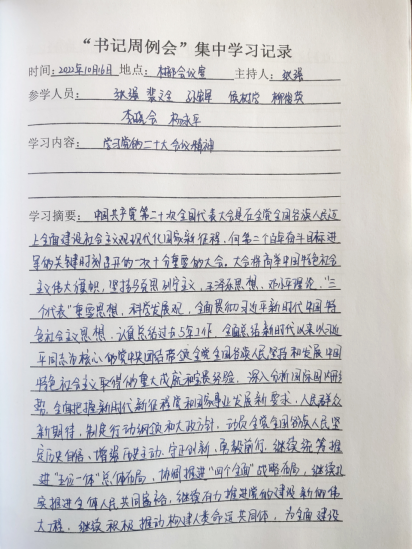 “书记周例会”集中学习记录
时间:2022年10月6日 地点:村部会议室 主持人:张强
参学人员: 张强 裴文全 孙宝军 侯树堂 柳俊英
李晓会 杨永平
学习内容: 学习党的二十大会议精神
学习摘要:中国共产党第二十次全国代表大会是在全党全国各族人民迈
上全面建设社会主义现代化国家新征程,向第二个百年奋斗目标进
军的关键时刻召开的一次十分重要的大会。大会将高举中国特色社会
主义伟大旗帜,坚持马克思列宁主义、毛泽东思想、邓小平理论、“三
个代表”重要思想、科学发展观,全面贯彻习近平新时代中国特
色社会主义思想,认真总结过去5年工作,全面总结新时代以来以习近
平同志为核心的党中央团结带领全党全国各族人民坚持和发展中国
特色社会主义取得的重大成就和宝贵经验,深入分析国际国内形
势,全面把握新时代新征程党和国家事业发展新要求,人民群众
新期待,制定行动纲领和大政方针,动员全党全国各族人民坚
定历史自信、增强历史主动、守正创新、勇毅前行,继续统筹推
进“五位一体”总体布局,协调推进“四个全面”战略布局,继续扎
实推进全体人民共同富裕,继续有力推进党的建设新的伟
大工程,继续积极推动构建人类命运共同体,为全面建设